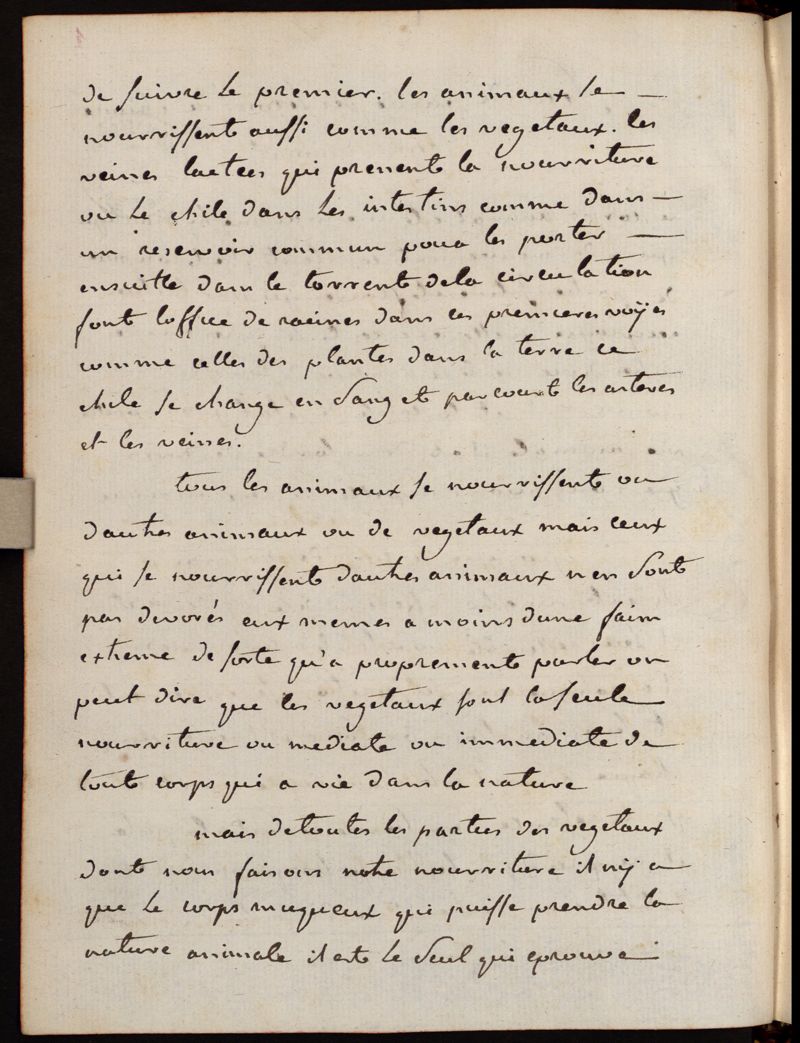 de suivre le premier. les animaux se —
nourrissent aussi comme les vegetaux. les
veines lactees qui prenent la nourriture
ou le chile dans les intestins comme dans —
un reservoir commun pour les porter —
ensuitte dans le torrent dela circulation
font loffice de racines dans ces premieres voÿes
comme celles des plantes dans la terre ce
chile se change en sang et parcourt les arteres
et les veines.
tous les animaux se nourrissent ou
dautres animaux ou de vegetaux mais ceux
qui se nourrissent dautres animaux n en sont
pas devorés eux memes a moins dune faim
extreme de sorte qu'a proprement parler on
peut dire que les vegetaux sont la seule
nourriture ou mediate ou immediate de
tout corps qui a vie dans la nature
mais detoutes les parties des vegetaux
dont nous faisons notre nourriture il nÿ a
que le corps muqueux qui puisse prendre la
nature animale il est le seul qui eprouve